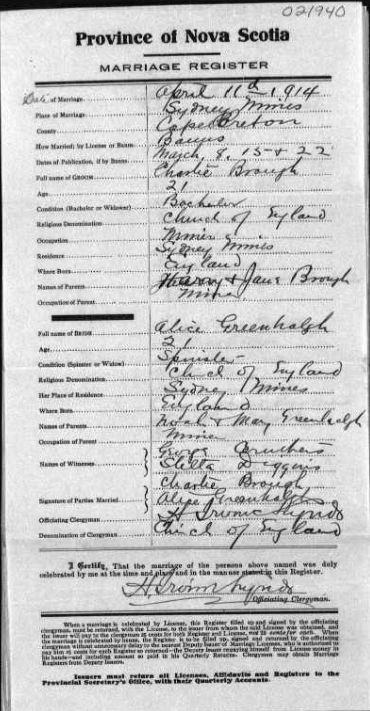 021940
Province of Nova Scotia
MARRIAGE REGISTER
Date of Marriage April 11th 1914
Place of Marriage Sydney Mines
County Cape Breton
How Married; by License or Banns Banns
Dates of Publication, if by Banns March 8, 15 & 22
Full name of GROOM Charlie Brough
Age 21
Condition (Bachelor or Widower) Bachelor
Religious Denomination Church of England
Occupation Miner
Residence Sydney Mines
Where Born England
Names of Parents Henry & Jane Brough
Occupation of Parent Miner
Full name of BRIDE Alice Greenhalgh
Age 21
Condition (Spinster or Widow) Spinster
Religious Denomination Church of England
Her Place of Residence Sydney Mines
Where Born England
Names of Parents Noah & Mary Greenhalgh
Occupation of Parent Miner
Names of Witnesses
Stella Diggins
Signature of Parties Married Charlie Brough
Alice Greenhalgh
Officiating Clergyman
Denomination of Clergyman Church of England
I Certify, That the marriage of the persons above named was duly
celebrated by me at the time and place and in the manner stated in this Register.
Officiating Clergyman.
When a marriage is celebrated by License, this Register filled up and signed by the officiating
clergyman, must be returned, with the License, to the issuer from whom the said License was obtained, and
the issuer will pay to the clergyman 25 cents for both Register and License, not 25 cents for each. When
the marriage is celebrated by banns, the Register is to be filled up, signed and returned by the officiating
clergyman without unnecessary delay to the nearest Deputy Issuer of Marriage Licenses, who is authorized to
pay him 25 cents for each Register so returned—the Deputy Issuer repaying himself from License money in
his hands—and including amount so paid in his Quarterly Returns. Clergymen may obtain Marriage
Registers from Deputy Issuers.
Issuers must return all Licenses, Affidavits and Registers to the
Provincial Secretary's Office, with their Quarterly Accounts.